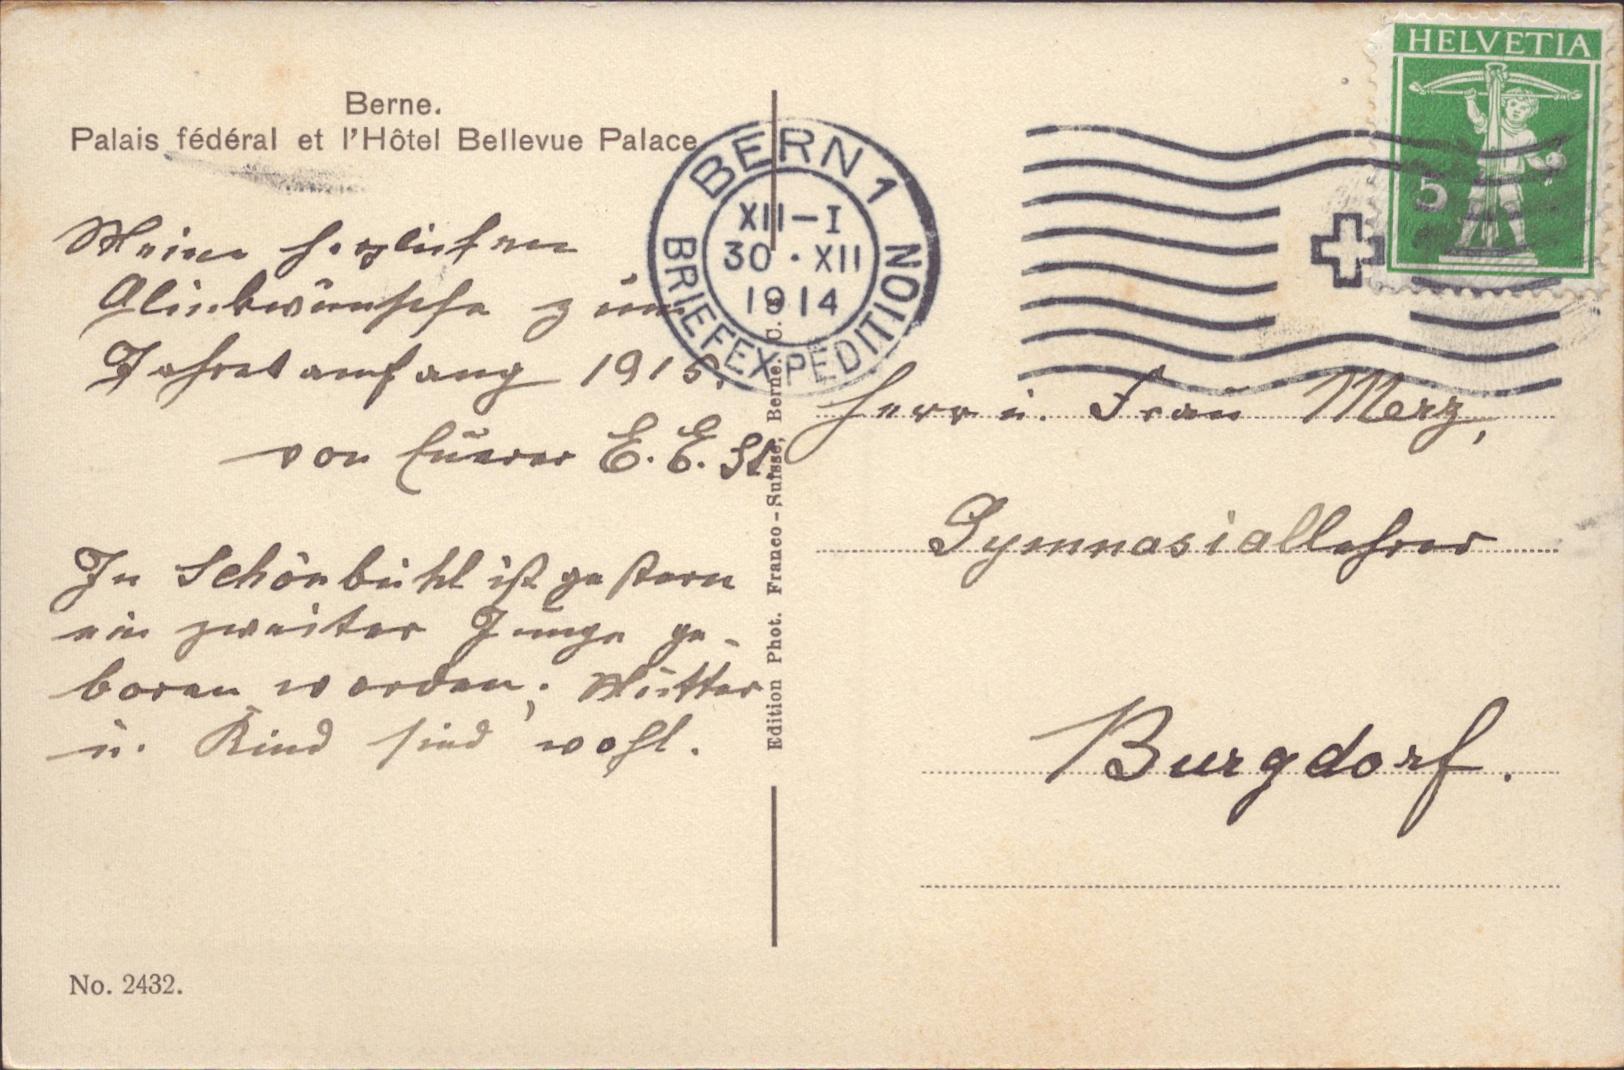 Berne.
Palais fédéral et l'Hôtel Bellevue Palace
Meine herzlichen
Glückwünsche zum
Jahresanfang 1915.
von Euerer E. E. St.
In Schönbühl ist gestern
ein zweiter Junge ge-
boren worden; Mutter
u. Kind sind wohl.
No. 2432.
Edition Phot. Franco-Suisse, Berne.
BERN 1
XII-I
30·XII
1914
BRIEFEXPEDITION
HELVETIA
5
Herr u. Frau Merz,
Gymnasiallehrer
Burgdorf.